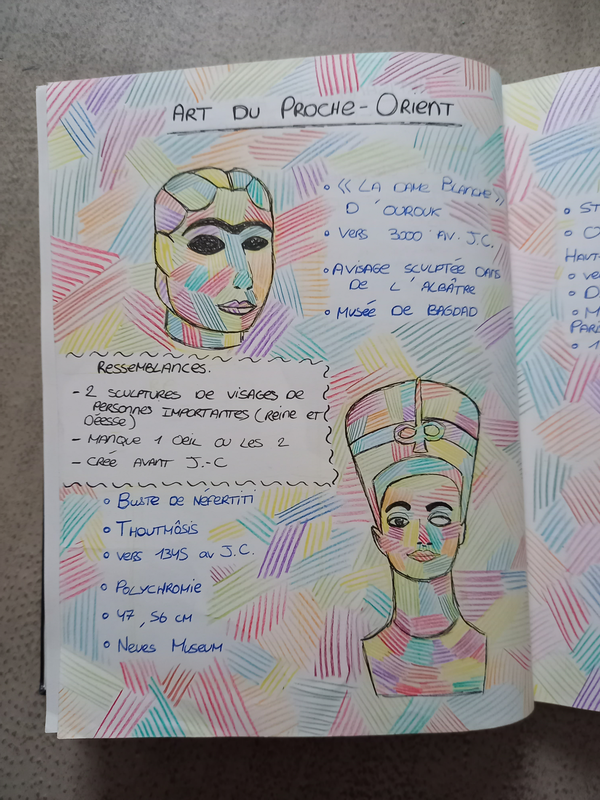 ART DU PROCHE-ORIENT
• « LA DAME BLANCHE »
D'OUROUK
• VERS 3000 AV. J.C.
• AVISAGE SCULPTÉE DANS
DE L'ALBÂTRE
• MUSÉE DE BAGDAD
RESSEMBLANCES.
- 2 SCULPTURES DE VISAGES DE
PERSONNES IMPORTANTES (REINE ET
DÉESSE)
- MANQUE 1 OEIL OU LES 2
- CRÉÉ AVANT J.-C
• BUSTE DE NÉFERTITI
• THOUTMÔSIS
• VERS 1345 AV J.C.
• POLYCHROMIE
• 47, 56 CM
• NEUES MUSEUM
• ST
HAUT-
• VE
• D
• M
PAR
• 1